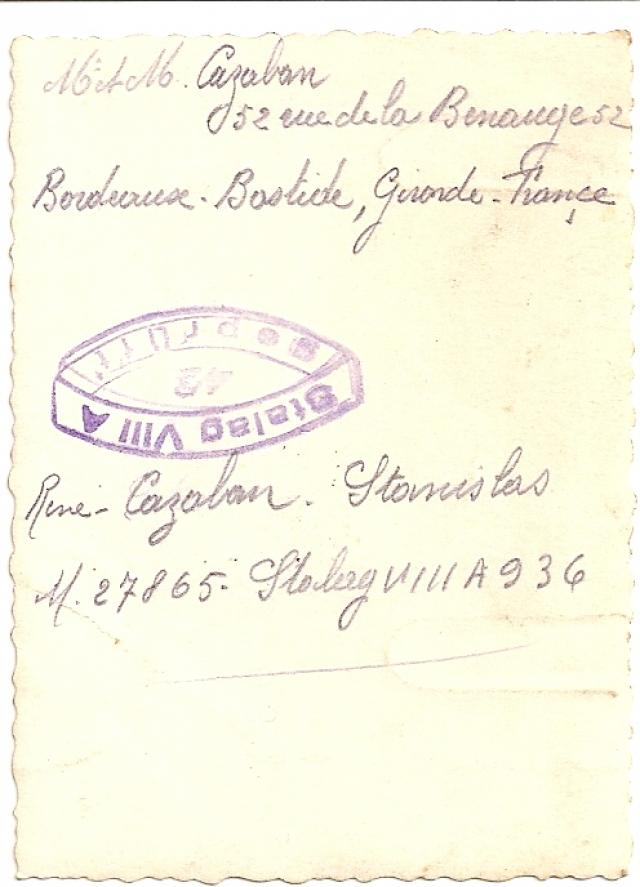 Mr et M. Cazaban
52 rue de la Benauge 52
Bordeaux-Bastide, Gironde-France
geprüft
42
Stalag VIII A
René-Cazaban. Stanislas
M. 27865- Stalag VIII A 936